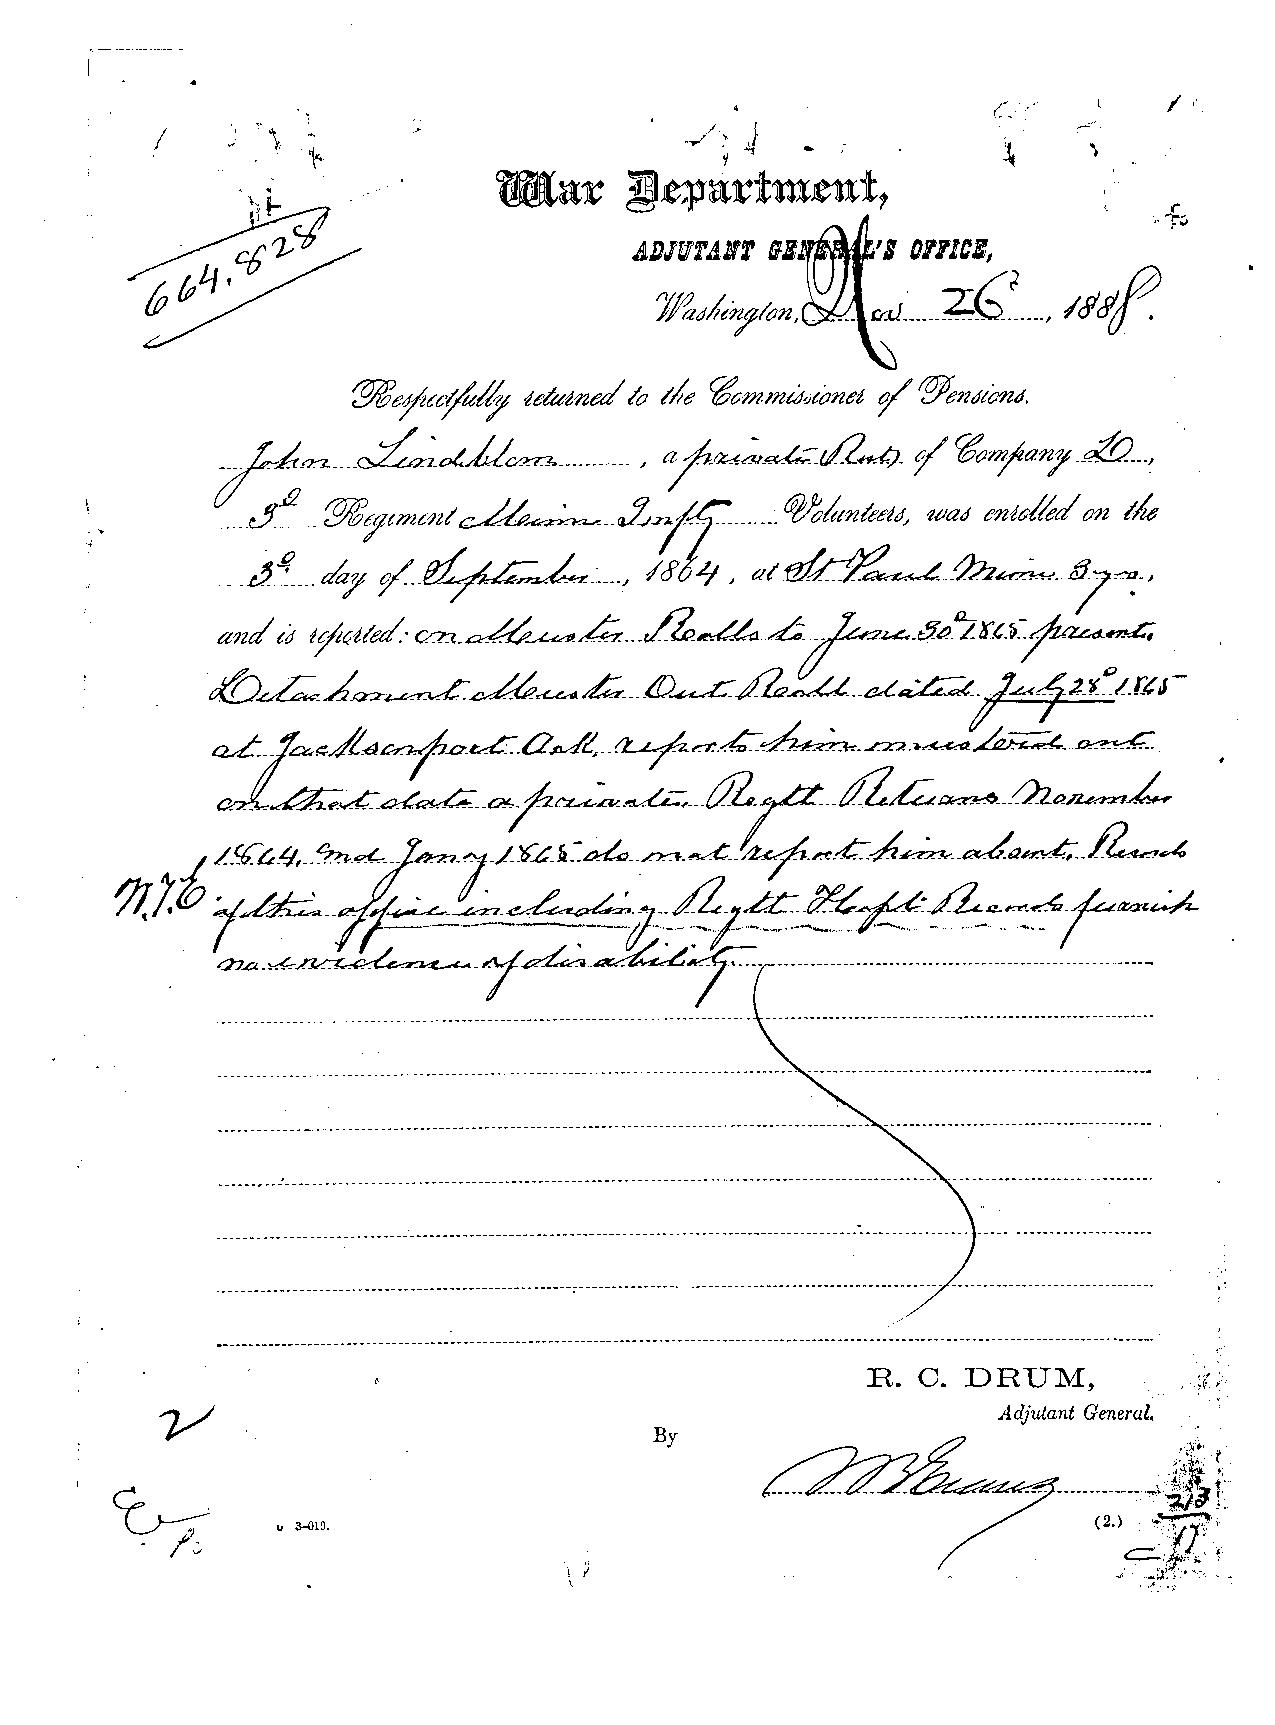 War Department,
ADJUTANT GENERAL'S OFFICE,
664,828
Washington, Nov 26, 1888.
Respectfully returned to the Commissioner of Pensions.
John Lindblom, a private (Rct) of Company D,
3d Regiment Minn Infty Volunteers, was enrolled on the
3d day of September, 1864, at St Paul Minn 3 yrs,
and is reported: on Muster Rolls to June 30d 1865 present.
Detachment Muster Out Roll dated July 28d 1865
at Jacksonport Ark, reports him mustered out
on that date a private. Regtl Returns November
1864, and Jany 1865 do not report him absent. Records
of this office including Regtl Hospl Records furnish
no evidence of disability.
R. C. DRUM,
Adjutant General.
2
By
3–019.
(2.)
213
17